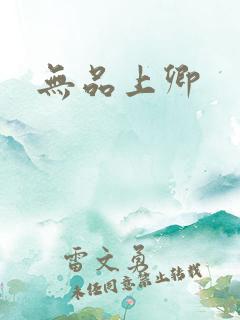 無品上卿
雷文勇
未经同意禁止转载